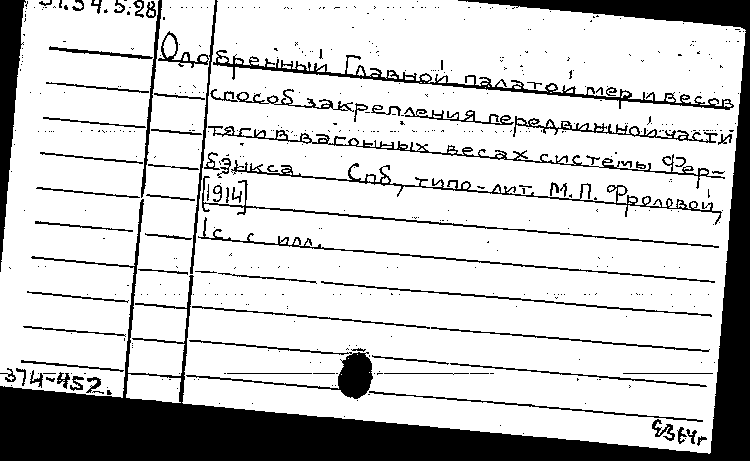 37.54.5.28
Одобренный Главной палатой мер и весов
способ закрепления передвижной части
тяги в вагонных весах системы Фер=
бэнкса. Спб, типо-лит. М.П. Фроловой,
[1914]
1с. с илл.
374-452.